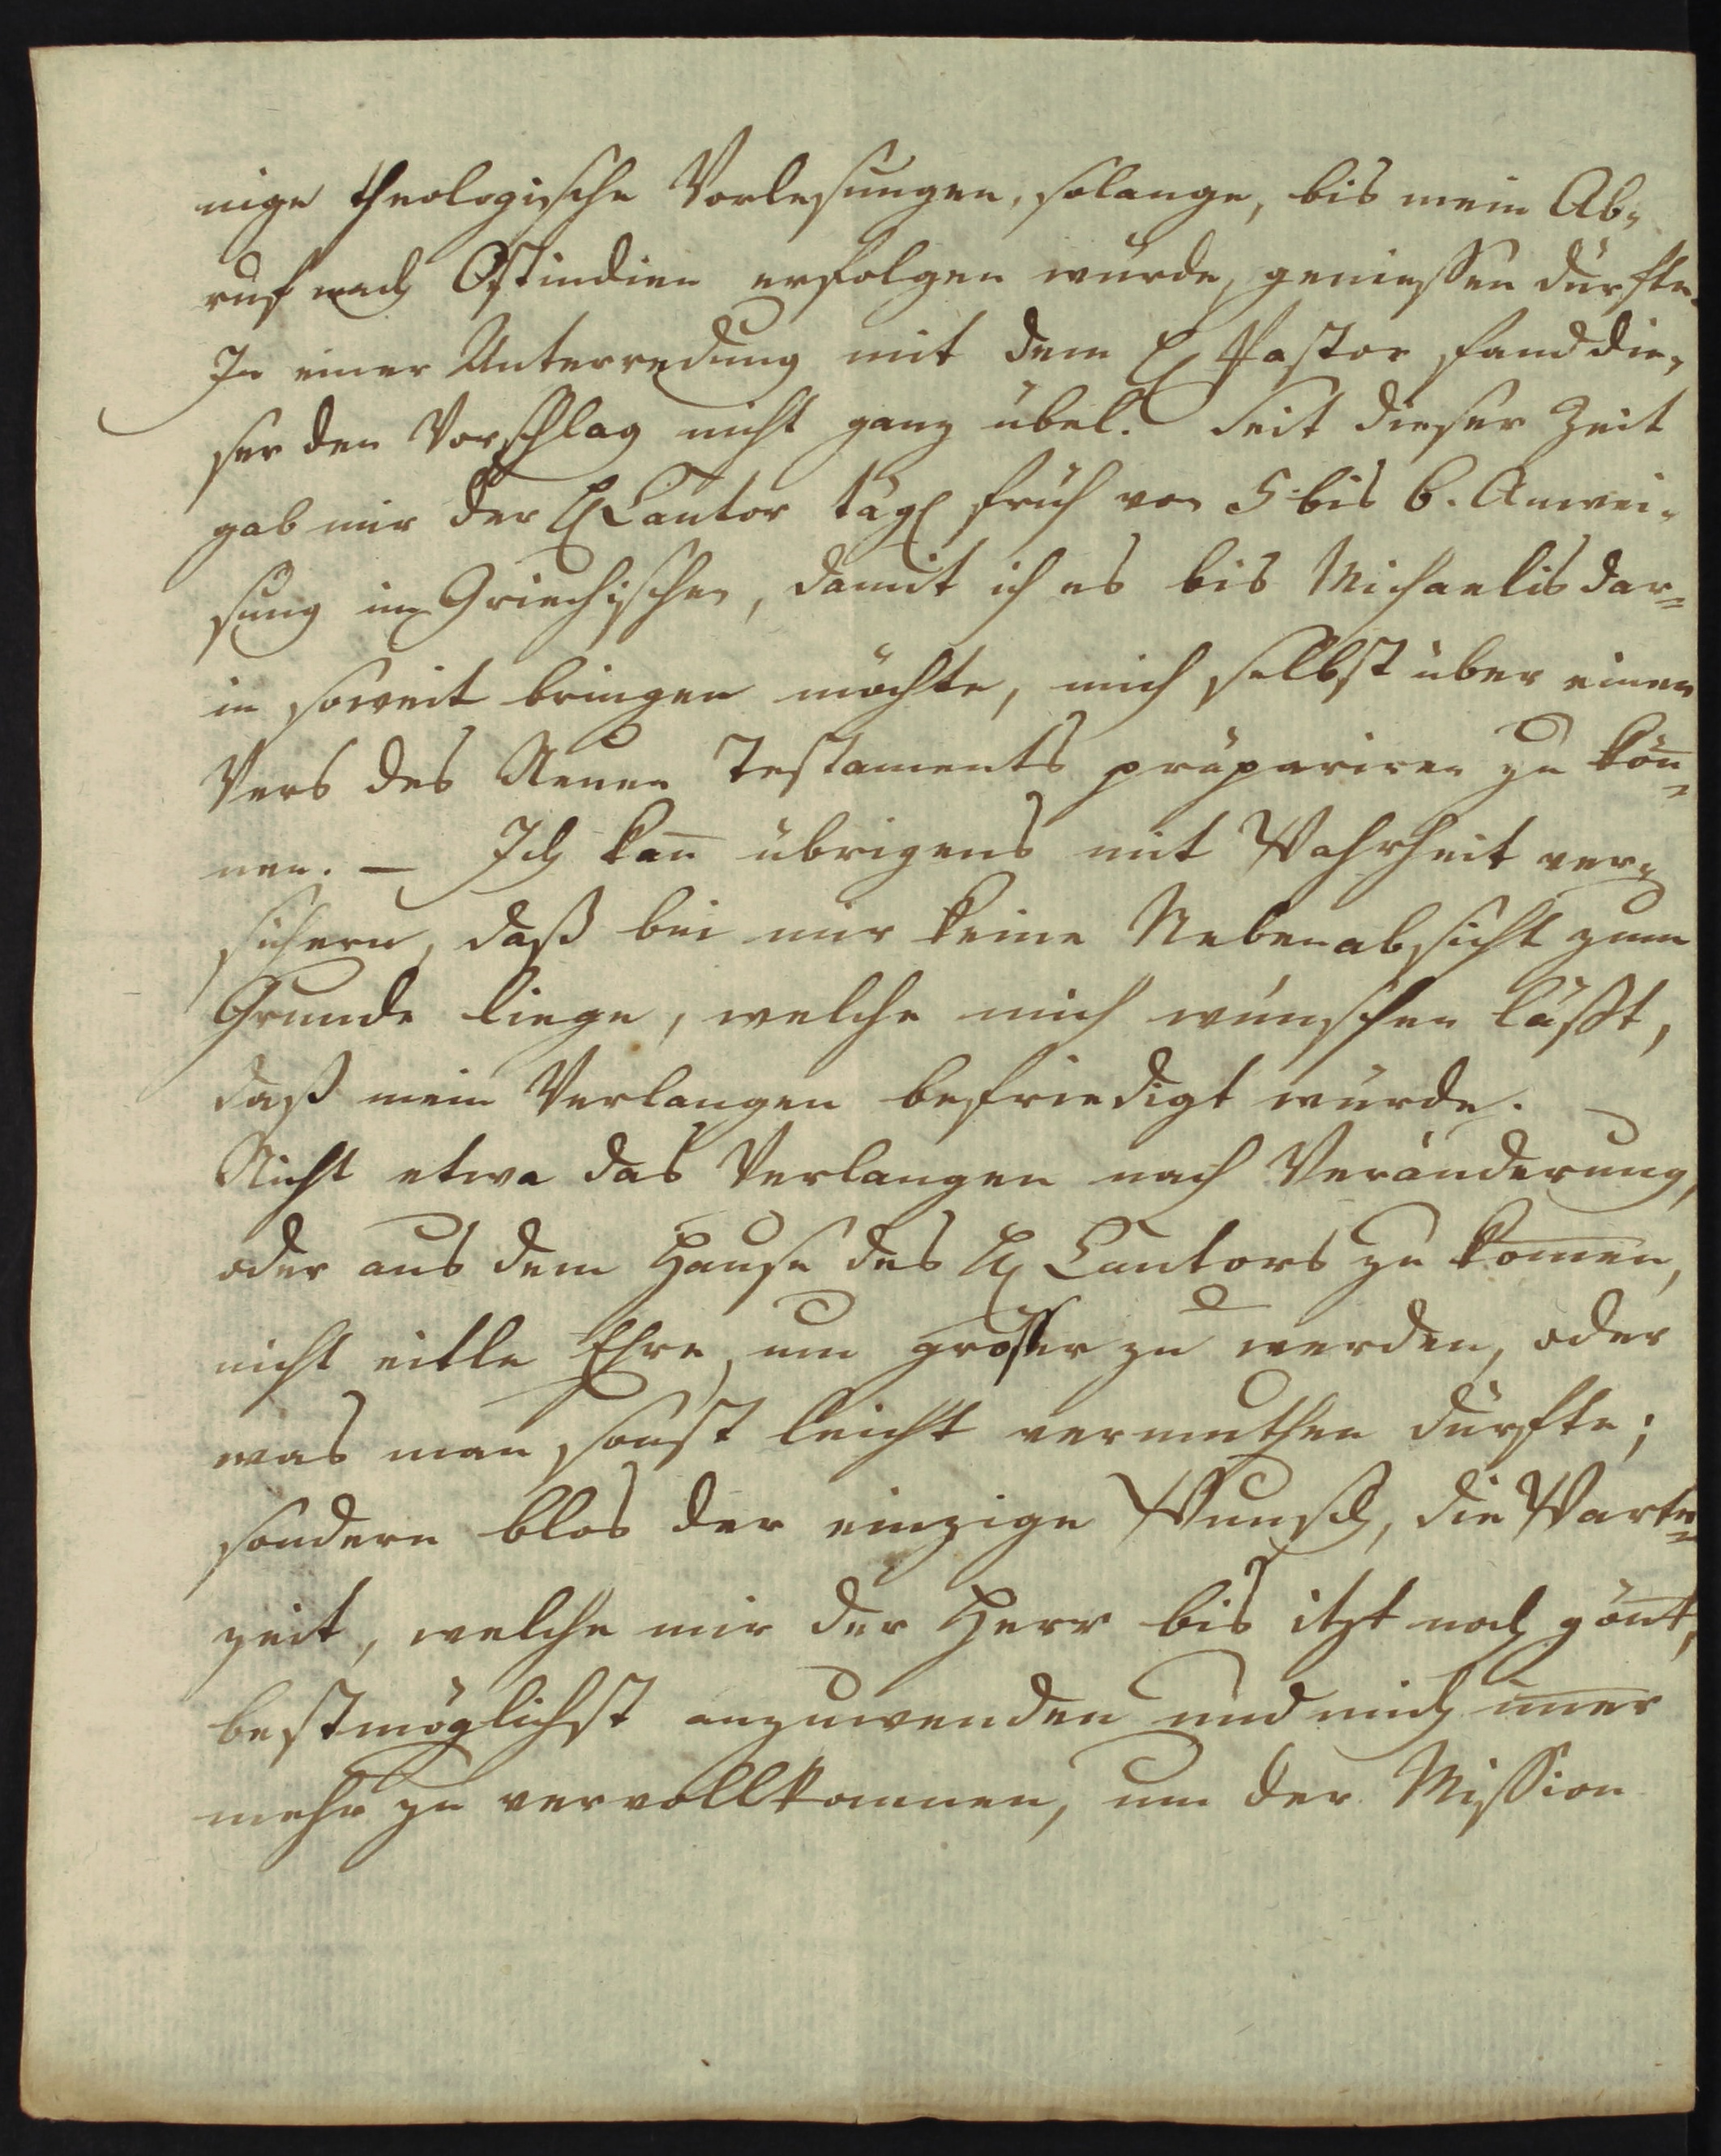 nige theologische Vorlesungen, solange, bis mein Ab-
ruf nach Ostindien erfolgen würde, geniessen dürfte.
In einer Unterredung mit dem H Pastor fand die-
ser den Vorschlag nicht ganz übel. Seit dieser Zeit
gab mir der H Cantor tägl früh von 5 bis 6. Anwei-
sung im Griechischen, damit ich es bis Michaelis dar=
in soweit bringen möchte, mich selbst über einen
Vers des Neuen Testaments präpariren zu kön̅=
nen. — Ich kan̅ übrigens mit Wahrheit ver-
sichern, daß bei mir keine Nebenabsicht zum
Grunde liege, welche mich wünschen läßt,
daß mein Verlangen befriedigt würde.
Nicht etwa das Verlangen nach Veränderung,
oder aus dem Hause des H Cantors zu kom̅en,
nicht eitle Ehre, um grösser zu werden, oder
was man sonst leicht vermuthen dürfte;
sondern blos der einzige Wunsch, die Warte=
zeit, welche mir der Herr bis itzt noch gön̅t,
bestmöglichst anzuwenden und mich im̅er
mehr zu vervollkommnen, um der Mission